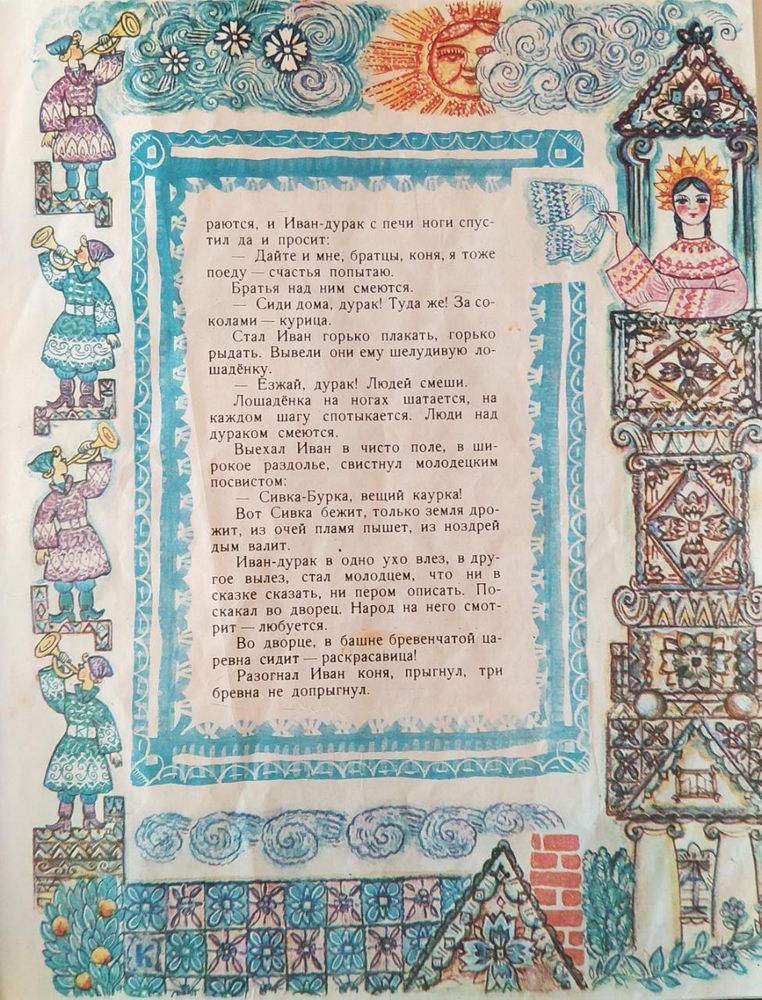 раются, и Иван-дурак с печи ноги спус-
тил да и просит:
— Дайте и мне, братцы, коня, я тоже
поеду — счастья попытаю.
Братья над ним смеются.
— Сиди дома, дурак! Туда же! За со-
колами — курица.
Стал Иван горько плакать, горько
рыдать. Вывели они ему шелудивую ло-
шадёнку.
— Езжай, дурак! Людей смеши.
Лошадёнка на ногах шатается, на
каждом шагу спотыкается. Люди над
дураком смеются.
Выехал Иван в чисто поле, в ши-
рокое раздолье, свистнул молодецким
посвистом:
— Сивка-Бурка, вещий каурка!
Вот Сивка бежит, только земля дро-
жит, из очей пламя пышет, из ноздрей
дым валит.
Иван-дурак в одно ухо влез, в дру-
гое вылез, стал молодцем, что ни в
сказке сказать, ни пером описать. По-
скакал во дворец. Народ на него смот-
рит — любуется.
Во дворце, в башне бревенчатой ца-
ревна сидит — раскрасавица!
Разогнал Иван коня, прыгнул, три
бревна не допрыгнул.
К